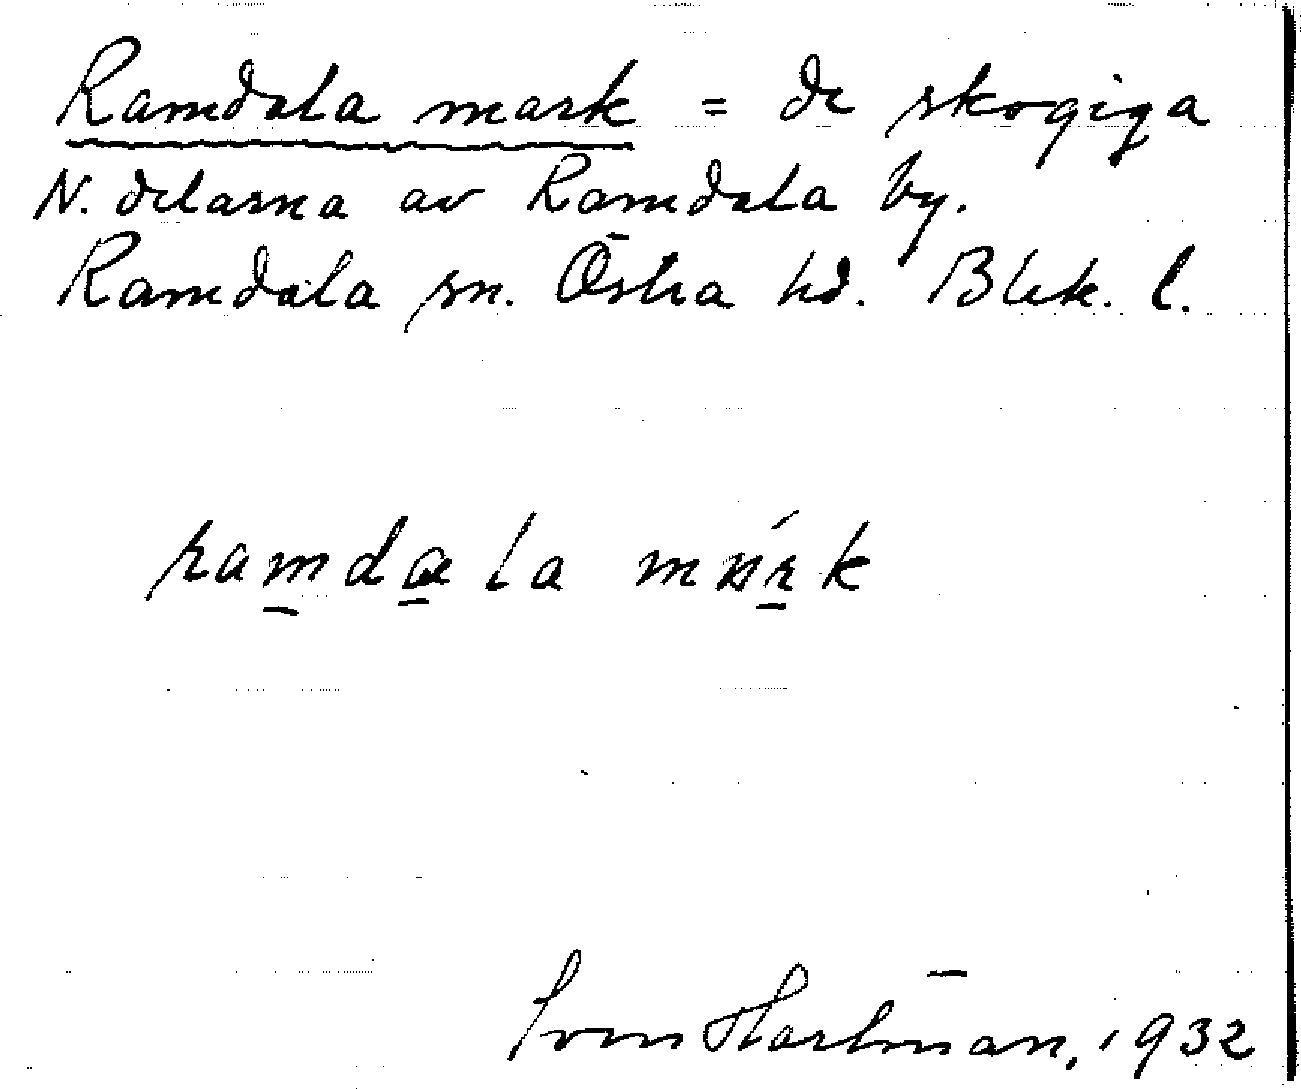 Ramdala mark = de skogiga
N. delarna av Ramdala by.
Ramdala sn. Östra hd. Blek. l.
ramdala mark
Sven Hartman, 1932